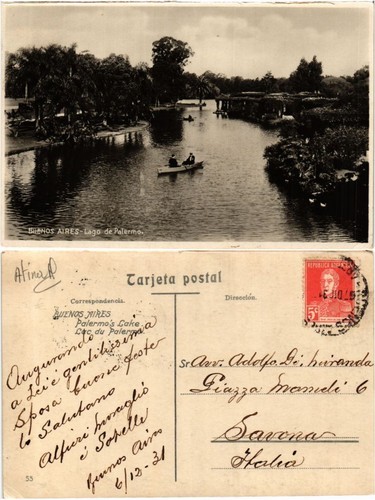 BUENOS AIRES - Lago de Palermo.
Tarjeta postal
Correspondencia.
Dirección.
BUENOS AIRES
Palermo's Lake
Lac du Palermo
REPUBLICA ARGENTINA
5c
Augurando
a Lei e gentilissima
Sposa buone feste
lo Salutano
Alfieri
e Sorelle
Buenos Aires
6/12-31
Sr Avv. Adolfo Di Miranda
Piazza Mameli 6
Savona
Italia
55